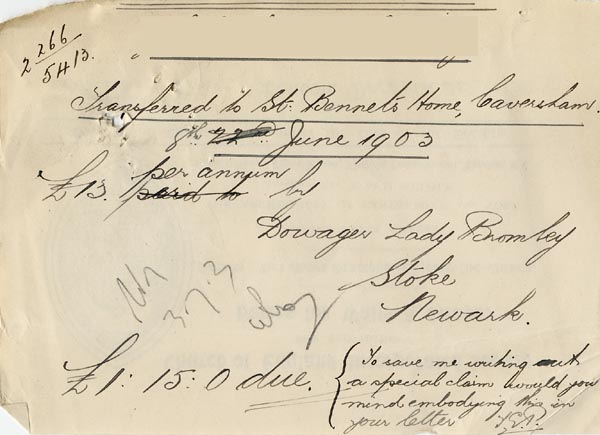 2 266
5413.
Transferred to St. Bennets Home, Caversham.
8th ~~22nd~~ June 1903
per annum
£13. ~~paid to~~ by
Dowager Lady Bromley
Stoke
Newark.
£1: 15: 0 due.
To save me writing out
a special claim would you
mind embodying this in
your letter